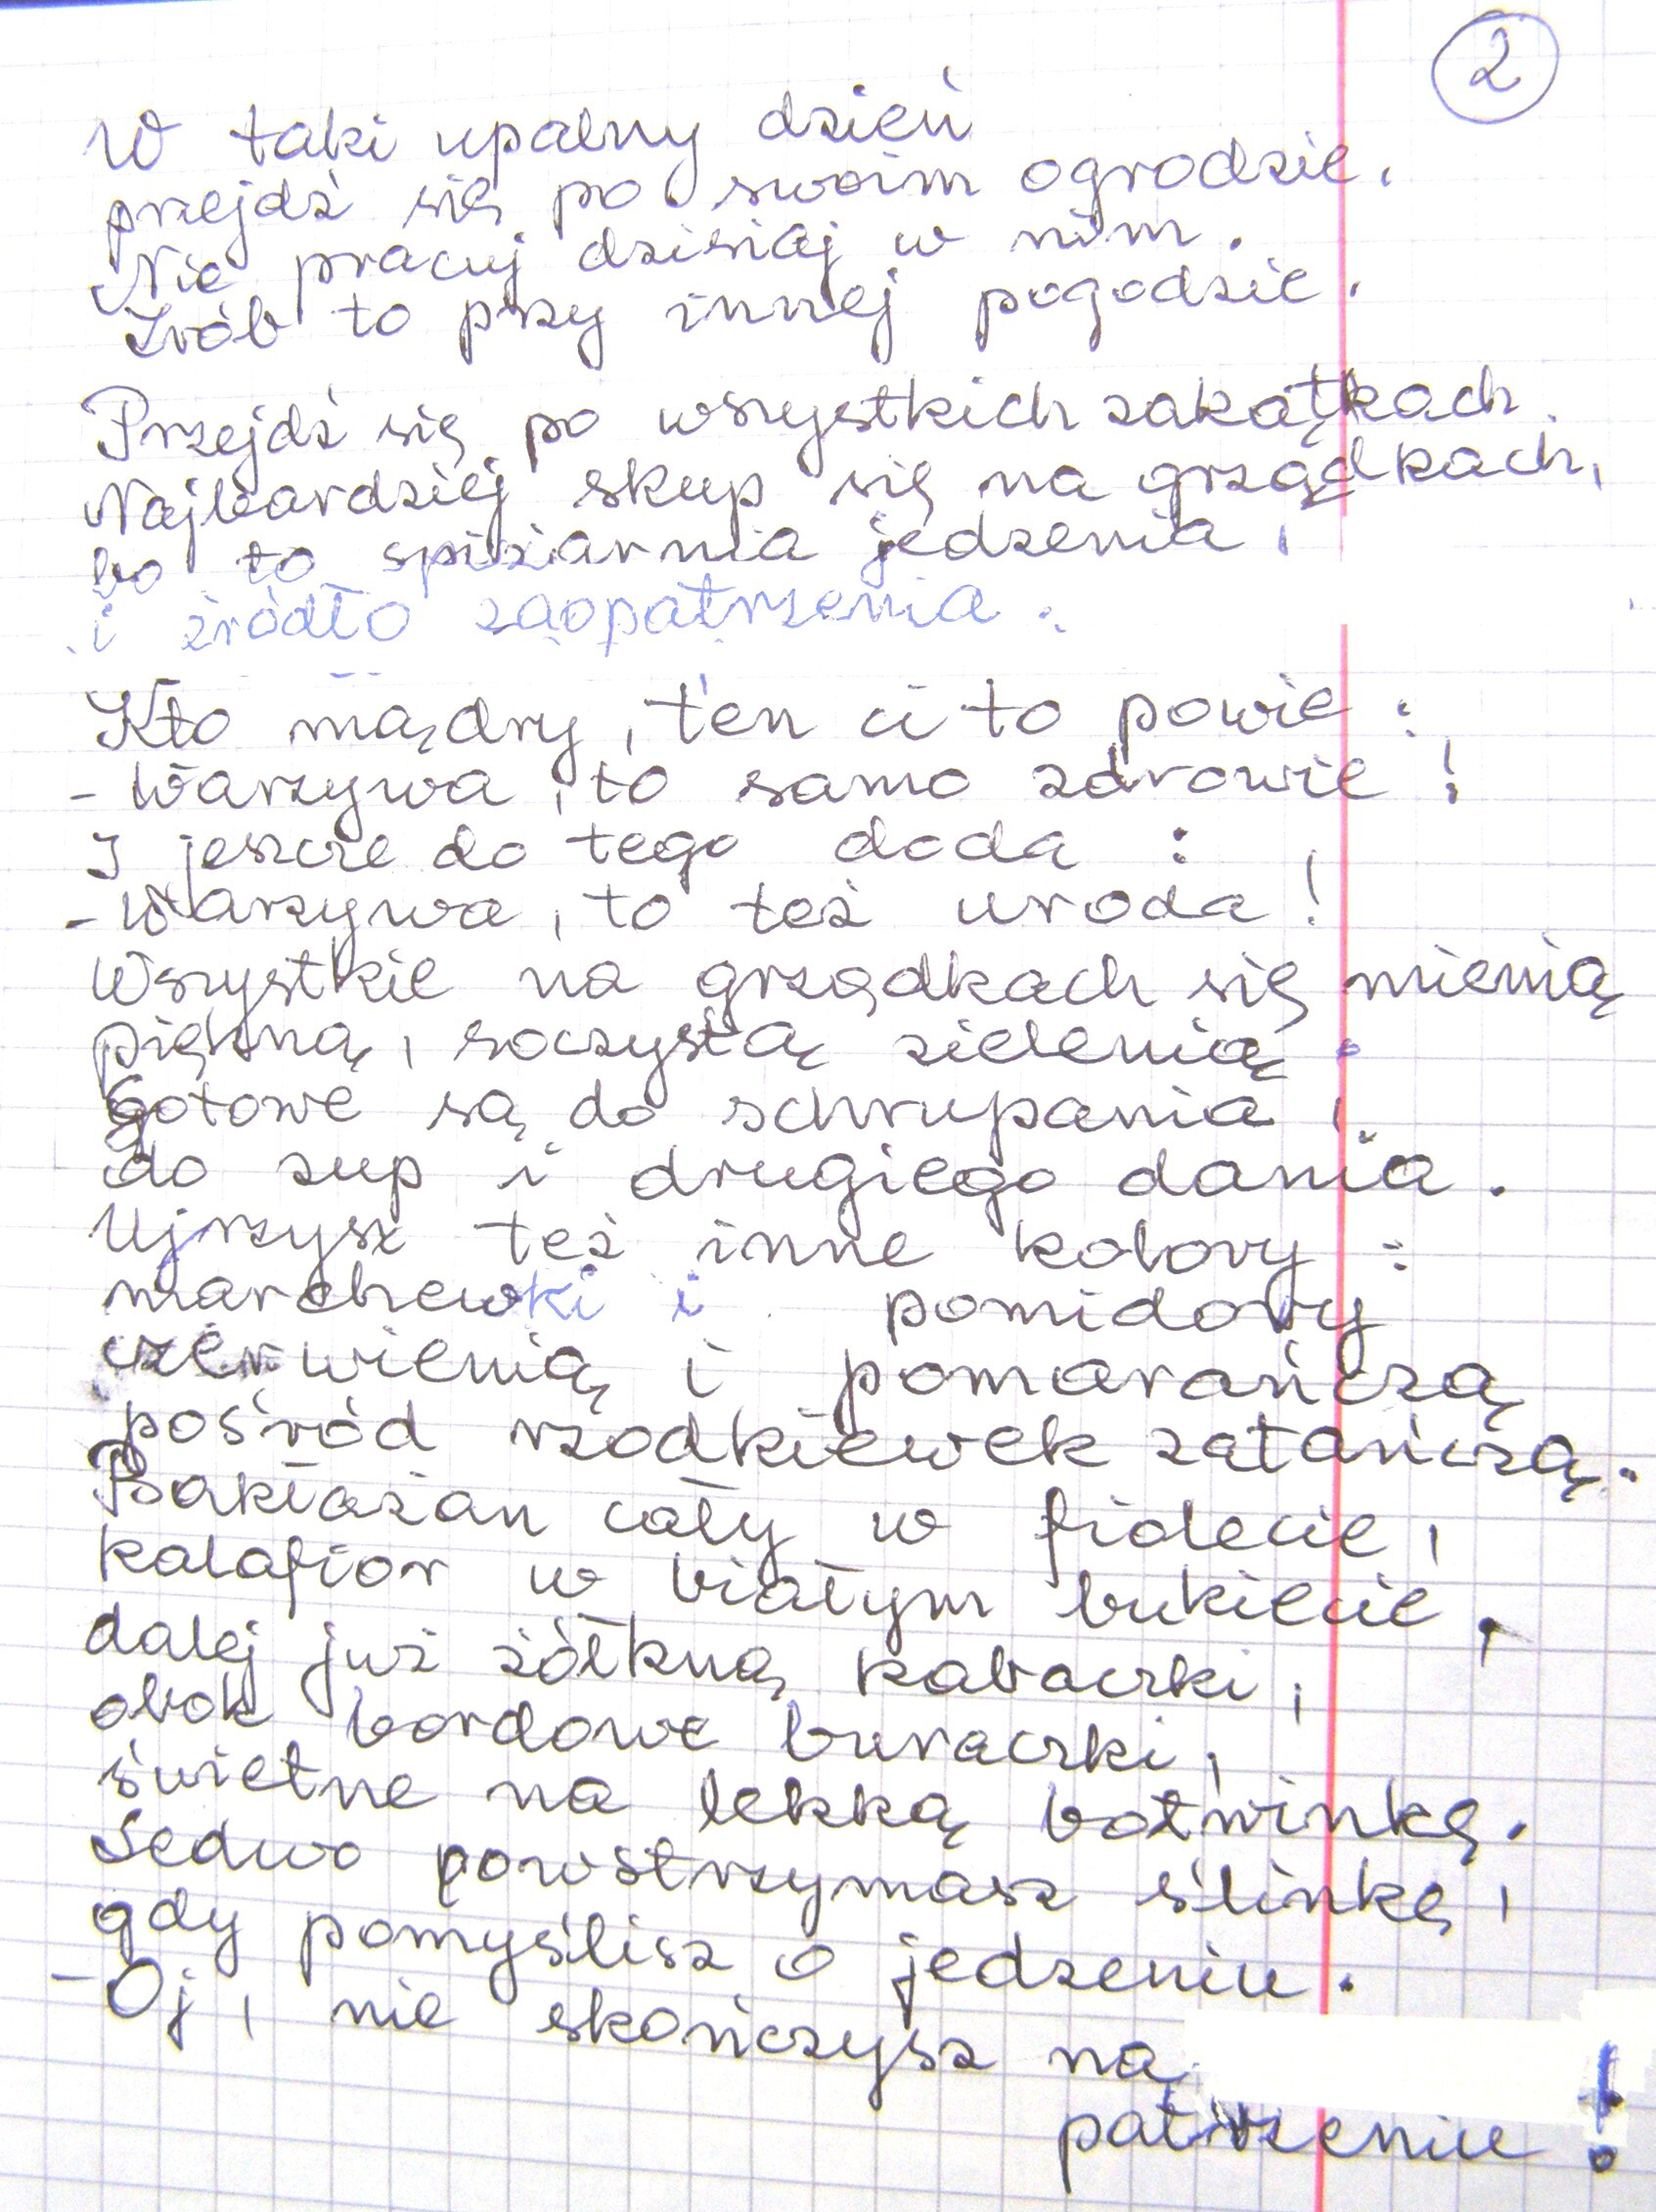 2
W taki upalny dzień
przejdź się po swoim ogrodzie.
Nie pracuj dzisiaj w nim.
Zrób to przy innej pogodzie.
Przejdź się po wszystkich zakątkach.
Najbardziej skup się na grządkach,
bo to spiżiarnia jedzenia,
i źródło zaopatrzenia.
Kto mądry, ten ci to powie:
- Warzywa, to samo zdrowie!
I jeszcze do tego doda:
- Warzywa, to też uroda!
Wszystkie na grządkach się mienią
piękną, soczystą zielenią.
Gotowe są do schrupania,
do zup i drugiego dania.
Ujrzysz też inne kolory:
marchewki i pomidory
czerwienią i pomarańczą
pośród rzodkiewek zatańczą.
Bakłażan cały w fiolecie,
kalafior w białym bukiecie,
dalej już żółkną kabaczki,
obok bordowe buraczki,
świetne na lekką botwinkę.
Ledwo powstrzymasz ślinkę,
gdy pomyślisz o jedzeniu.
- Oj, nie skończysz na
patrzeniu!